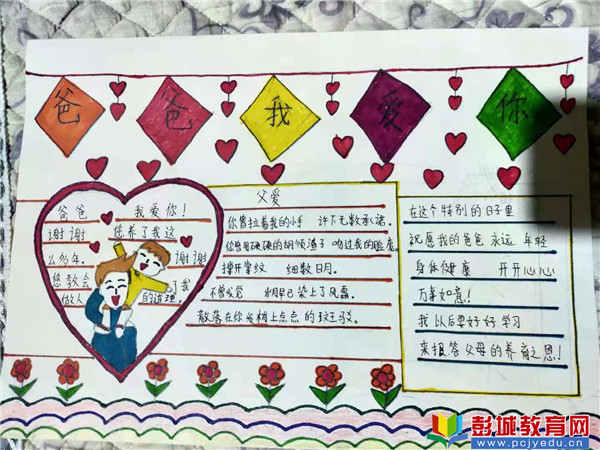 爸 爸 我 爱 你
爸爸 我爱你!
谢谢 您养了我这
么多年. 谢谢
您教会 了我
做人 的道理.
父爱
你曾拉着我的小手 许下无数承诺.
你曾用硬硬的胡须渣子 吻过我的脸庞.
撑开掌纹 细数日月.
不曾发觉 发梢早已染上了风霜.
散落在你发梢上点点的
在这个特别的日子里
祝愿我的爸爸 永远 年轻
身体健康 开开心心
万事如意!
我以后要好好学习
来报答父母的养育之恩!
彭城教育网
www.pcjyedu.cn